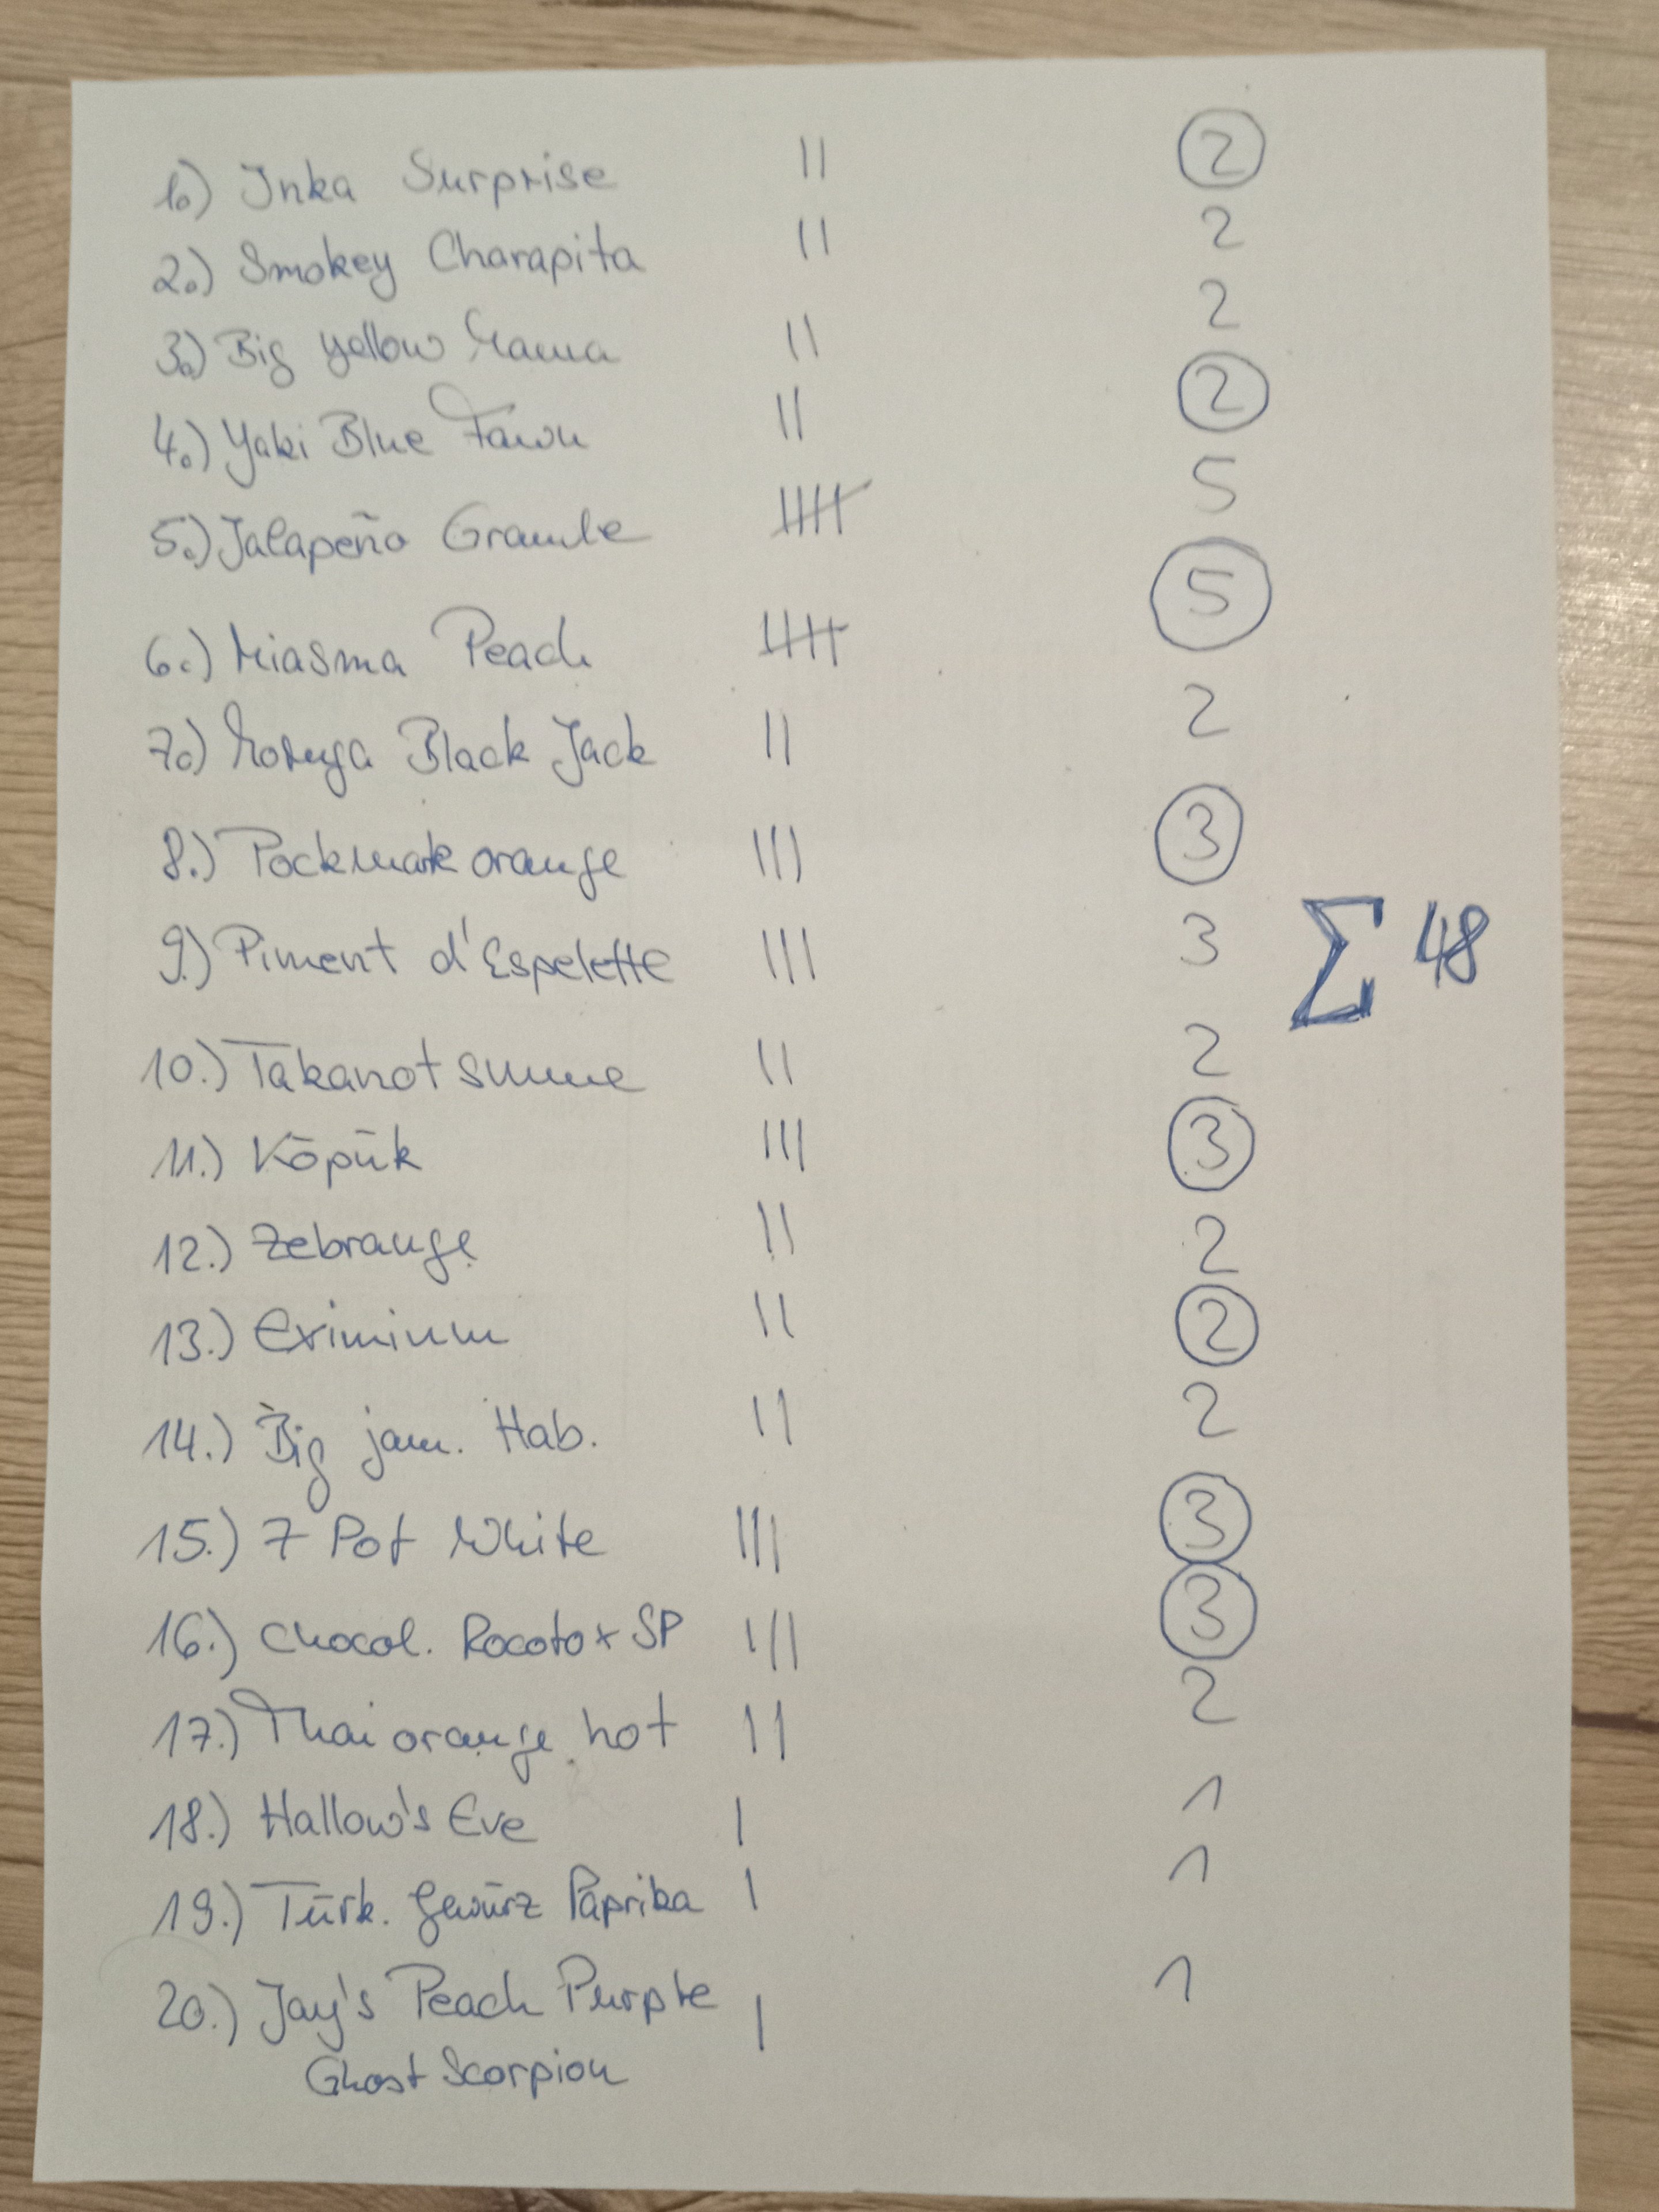 1.) Inka Surprise || 2
2.) Smokey Charapita || 2
3.) Big yellow Mama || 2
4.) Yaki Blue Fawn || 2
5.) Jalapeño Grande |||| 5
6.) Miasma Peach |||| 5
7.) Black Jack || 2
8.) Pockmark orange ||| 3
9.) Piment d'Espelette ||| 3
∑ 48
10.) Takanotsume || 2
11.) Köpük ||| 3
12.) Zebrange || 2
13.) Eximium || 2
14.) Big jam. Hab. || 2
15.) 7 Pot White ||| 3
16.) Chocol. Rocoto x SP ||| 3
17.) Thai orange hot || 2
18.) Hallow's Eve | 1
19.) Türk. Gewürz Paprika | 1
20.) Jay's Peach Purple | 1
Ghost Scorpion